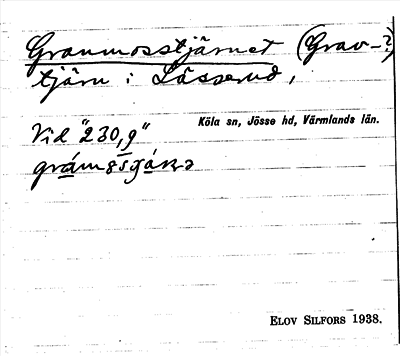 Granmosstjärnet (Grav-?)
tjärn i Lässerud,
Köla sn, Jösse hd, Värmlands län.
Vid "230,9"
ELOV SILFORS 1938.